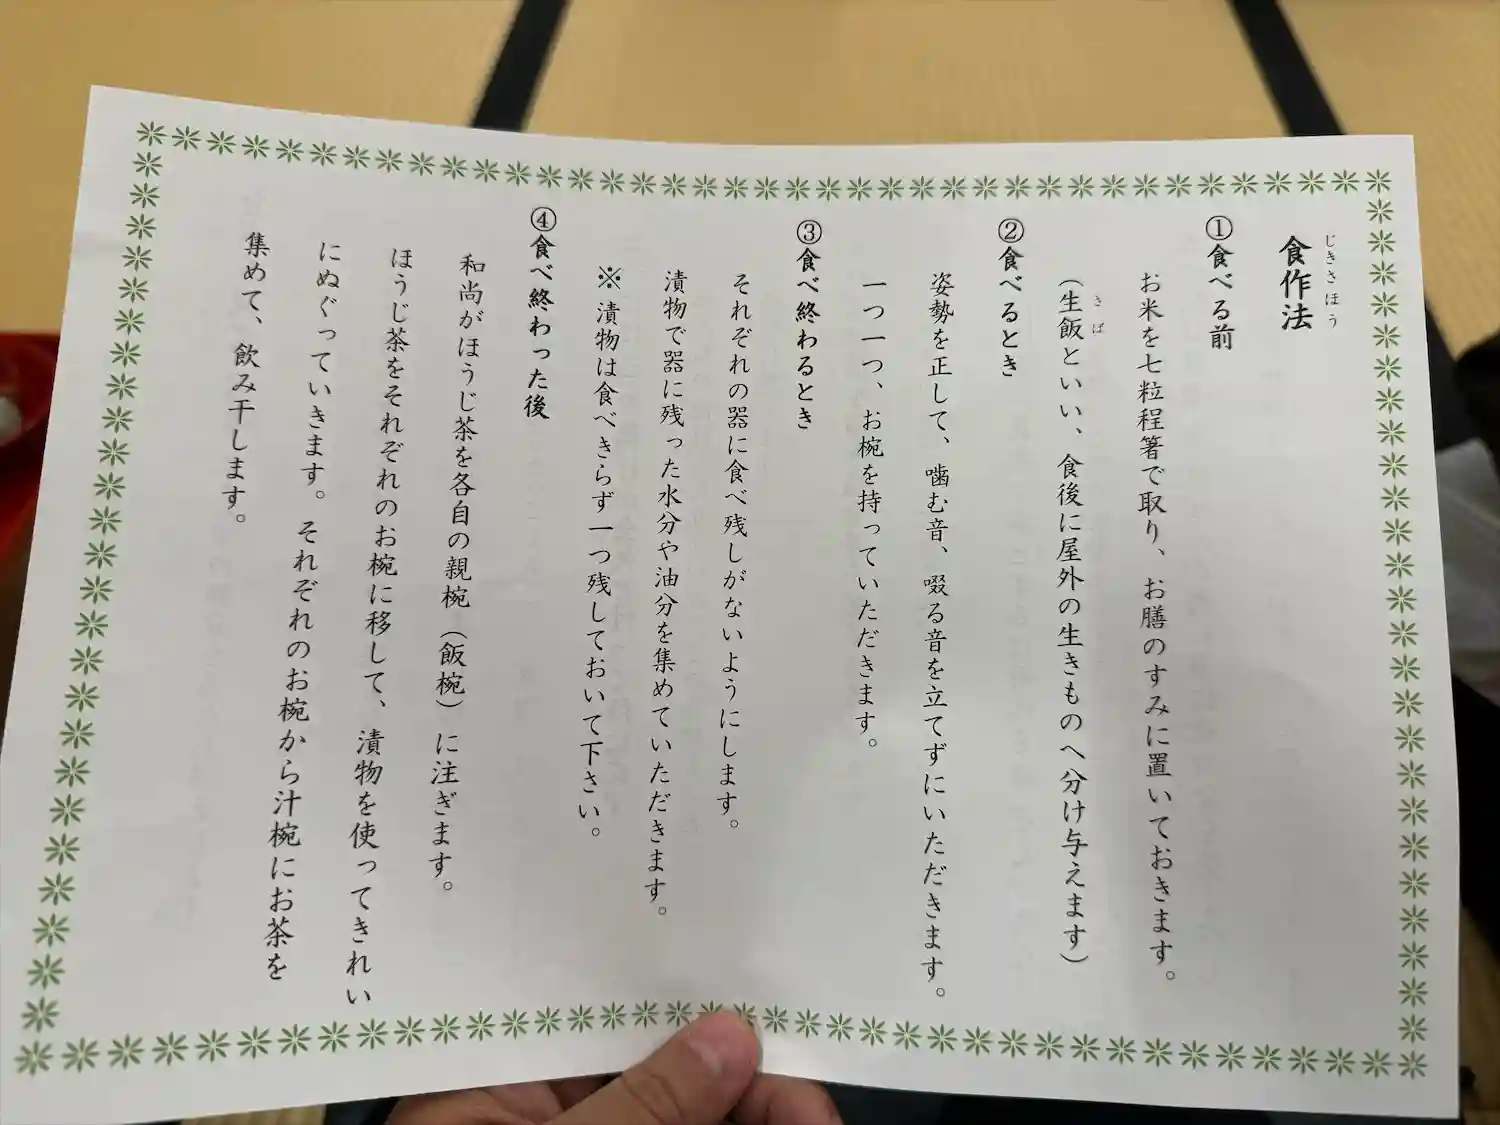 食作法
じきさほう
①食べる前
お米を七粒程箸で取り、お膳のすみに置いておきます。
（生飯といい、食後に屋外の生きものへ分け与えます）
きば
②食べるとき
姿勢を正して、噛む音、啜る音を立てずにいただきます。
一つ一つ、お椀を持っていただきます。
③食べ終わるとき
それぞれの器に食べ残しがないようにします。
漬物で器に残った水分や油分を集めていただきます。
※漬物は食べきらず一つ残しておいて下さい。
④食べ終わった後
和尚がほうじ茶を各自の親椀（飯椀）に注ぎます。
ほうじ茶をそれぞれのお椀に移して、漬物を使ってきれい
にぬぐっていきます。それぞれのお椀から汁椀にお茶を
集めて、飲み干します。